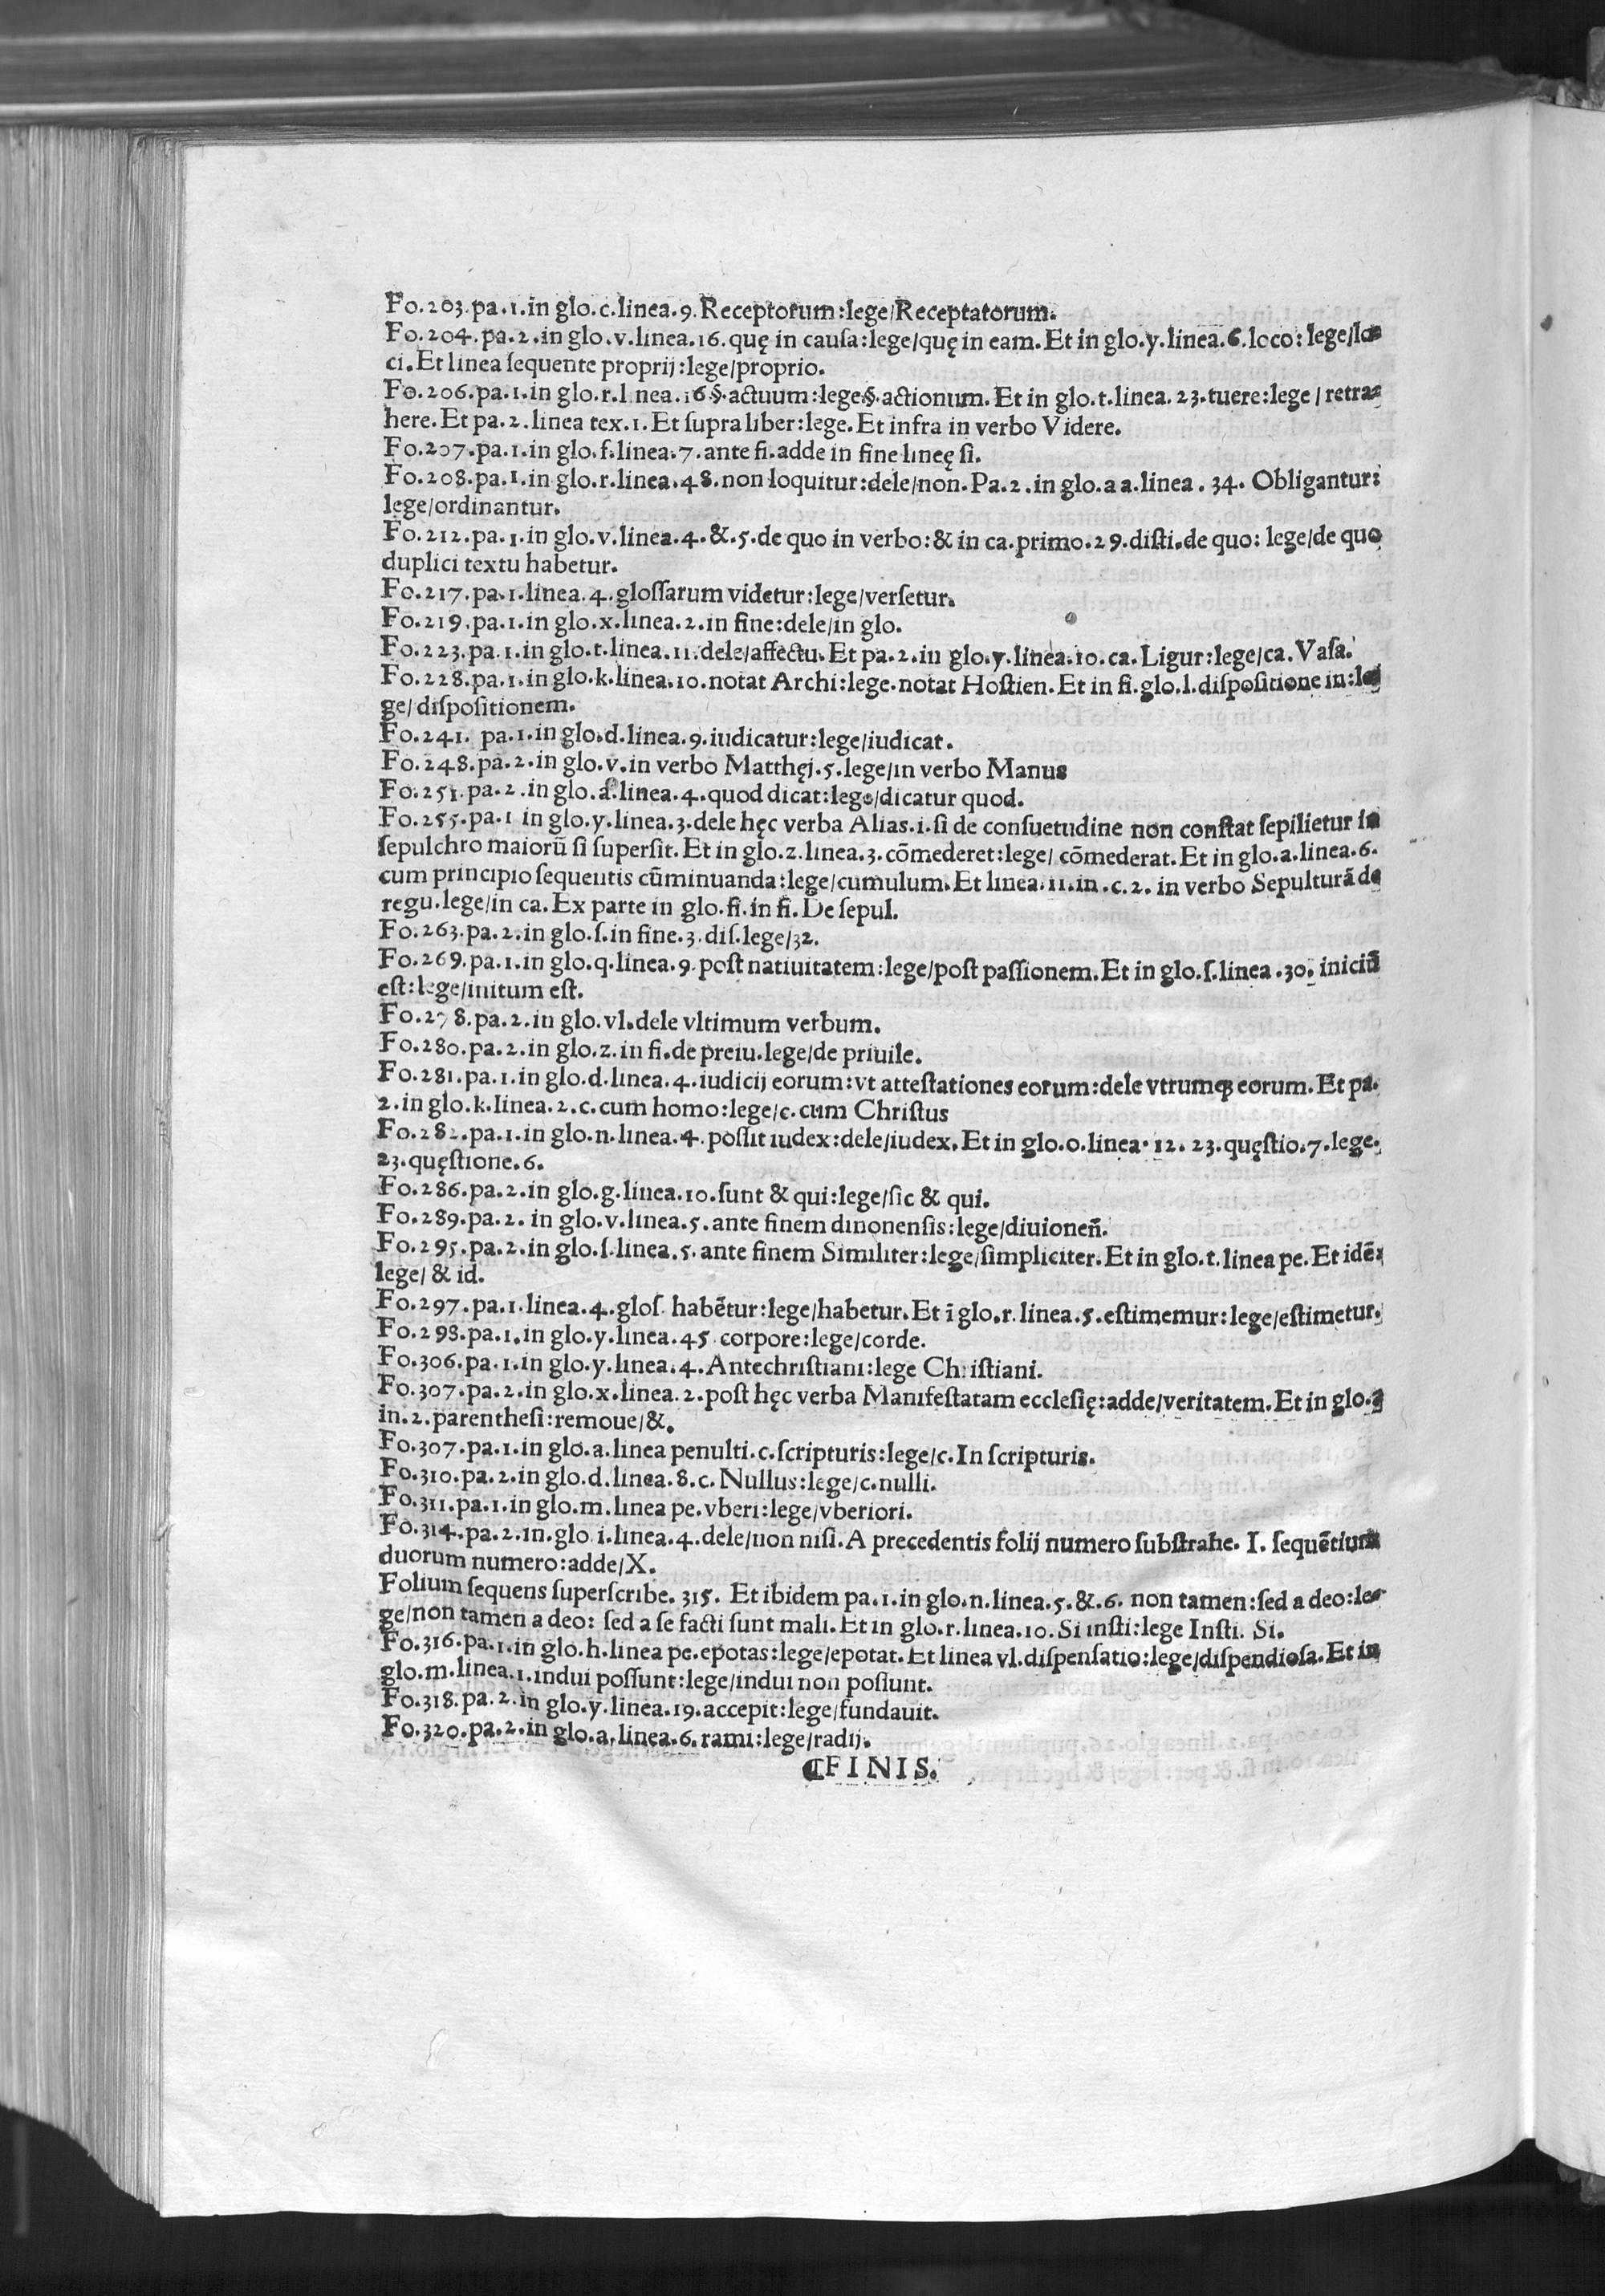 Fo.203.pa.1.in glo.c.linea.9.Receptorum:lege/Receptatorum.
Fo.204.pa.2.in glo.v.linea.16.quę in cauſa:lege/quę in eam.Et in glo.y.linea.6.loco:lege/lo-
ci.Et linea ſequente proprij:lege/proprio.
Fo.206.pa.1.in glo.r.linea.16.§.actuum:lege§.actionum.Et in glo.t.linea.23.tuere:lege/retra-
here.Et pa.2.linea tex.1.Et ſupra liber:lege.Et infra in verbo Videre.
Fo.207.pa.1.in glo.f.linea.7.ante fi.adde in fine lineę ſi.
Fo.208.pa.1.in glo.r.linea.48.non loquitur:dele/non.Pa.2.in glo.aa.linea.34.Obligantur:
lege/ordinantur.
Fo.212.pa.1.in glo.v.linea.4.&.5.de quo in verbo:& in ca.primo.29.diſti.de quo:lege/de quo
duplici textu habetur.
Fo.217.pa.1.linea.4.gloſſarum videtur:lege/verſetur.
Fo.219.pa.1.in glo.x.linea.2.in fine:dele/in glo.
Fo.223.pa.1.in glo.t.linea.11.dele/affectu.Et pa.2.in glo.y.linea.10.ca.Ligur:lege/ca.Vaſa.
Fo.228.pa.1.in glo.k.linea.10.notat Archi:lege.notat Hoſtien.Et in fi.glo.l.diſpoſitione in:le-
ge/diſpoſitionem.
Fo.241.pa.1.in glo.d.linea.9.iudicatur:lege/iudicat.
Fo.248.pa.2.in glo.v.in verbo Matthęj.5.lege/in verbo Manus
Fo.251.pa.2.in glo.a.linea.4.quod dicat:lege/dicatur quod.
Fo.255.pa.1 in glo.y.linea.3.dele hęc verba Alias.i.ſi de conſuetudine non conſtat ſepilietur in
ſepulchro maiorū ſi ſuperſit.Et in glo.z.linea.3.cōmederet:lege/cōmederat.Et in glo.a.linea.6.
cum principio ſequentis cūminuanda:lege/cumulum.Et linea.11.in.c.2.in verbo Sepulturā de
regu.lege/in ca.Ex parte in glo.fi.in fi.De ſepul.
Fo.263.pa.2.in glo.ſ.in fine.3.diſ.lege/32.
Fo.269.pa.1.in glo.q.linea.9.poſt natiuitatem:lege/poſt paſſionem.Et in glo.ſ.linea.30.iniciū
eſt:lege/initum eſt.
Fo.278.pa.2.in glo.vl.dele vltimum verbum.
Fo.280.pa.2.in glo.z.in fi.de preiu.lege/de priuile.
Fo.281.pa.1.in glo.d.linea.4.iudicij eorum:vt atteſtationes eorum:dele vtrumꝗ eorum.Et pa.
2.in glo.k.linea.2.c.cum homo:lege/c.cum Chriſtus
Fo.282.pa.1.in glo.n.linea.4.poſſit iudex:dele/iudex.Et in glo.o.linea.12.23.quęſtio.7.lege.
23.quęſtione.6.
Fo.286.pa.2.in glo.g.linea.10.ſunt & qui:lege/ſic & qui.
Fo.289.pa.2.in glo.v.linea.5.ante finem dinonenſis:lege/diuioneñ.
Fo.295.pa.2.in glo.ſ.linea.5.ante finem Similiter:lege/ſimpliciter.Et in glo.t.linea pe.Et idē:
lege/& id.
Fo.297.pa.1.linea.4.gloſ habētur:lege/habetur.Et ī glo.r.linea.5.eſtimemur:lege/eſtimetur.
Fo.298.pa.1.in glo.y.linea.45.corpore:lege/corde.
Fo.306.pa.1.in glo.y.linea.4.Antechriſtiani:lege Chriſtiani.
Fo.307.pa.2.in glo.x.linea.2.poſt hęc verba Manifeſtatam eccleſię:adde/veritatem.Et in glo.
in.2.parentheſi:remoue/&.
Fo.307.pa.1.in glo.a.linea penulti.c.ſcripturis:lege/c.In ſcripturis.
Fo.310.pa.2.in glo.d.linea.8.c.Nullus:lege/c.nulli.
Fo.311.pa.1.in glo.m.linea pe.vberi:lege/vberiori.
Fo.314.pa.2.in.glo.i.linea.4.dele/non niſi.A precedentis folij numero ſubſtrahe.I.ſequētium
duorum numero:adde/X.
Folium ſequens ſuperſcribe.315.Et ibidem pa.1.in glo.n.linea.5.&.6.non tamen:ſed a deo:le-
ge/non tamen a deo:ſed a ſe facti ſunt mali.Et in glo.r.linea.10.Si inſti:lege Inſti.Si.
Fo.316.pa.1.in glo.h.linea pe.epotas:lege/epotat.Et linea vl.diſpenſatio:lege/diſpendioſa.Et in
glo.m.linea.1.indui poſſunt:lege/indui non poſſunt.
Fo.318.pa.2.in glo.y.linea.19.accepit:lege/fundauit.
Fo.320.pa.2.in glo.a.linea.6.rami:lege/radij.
⁋FINIS.